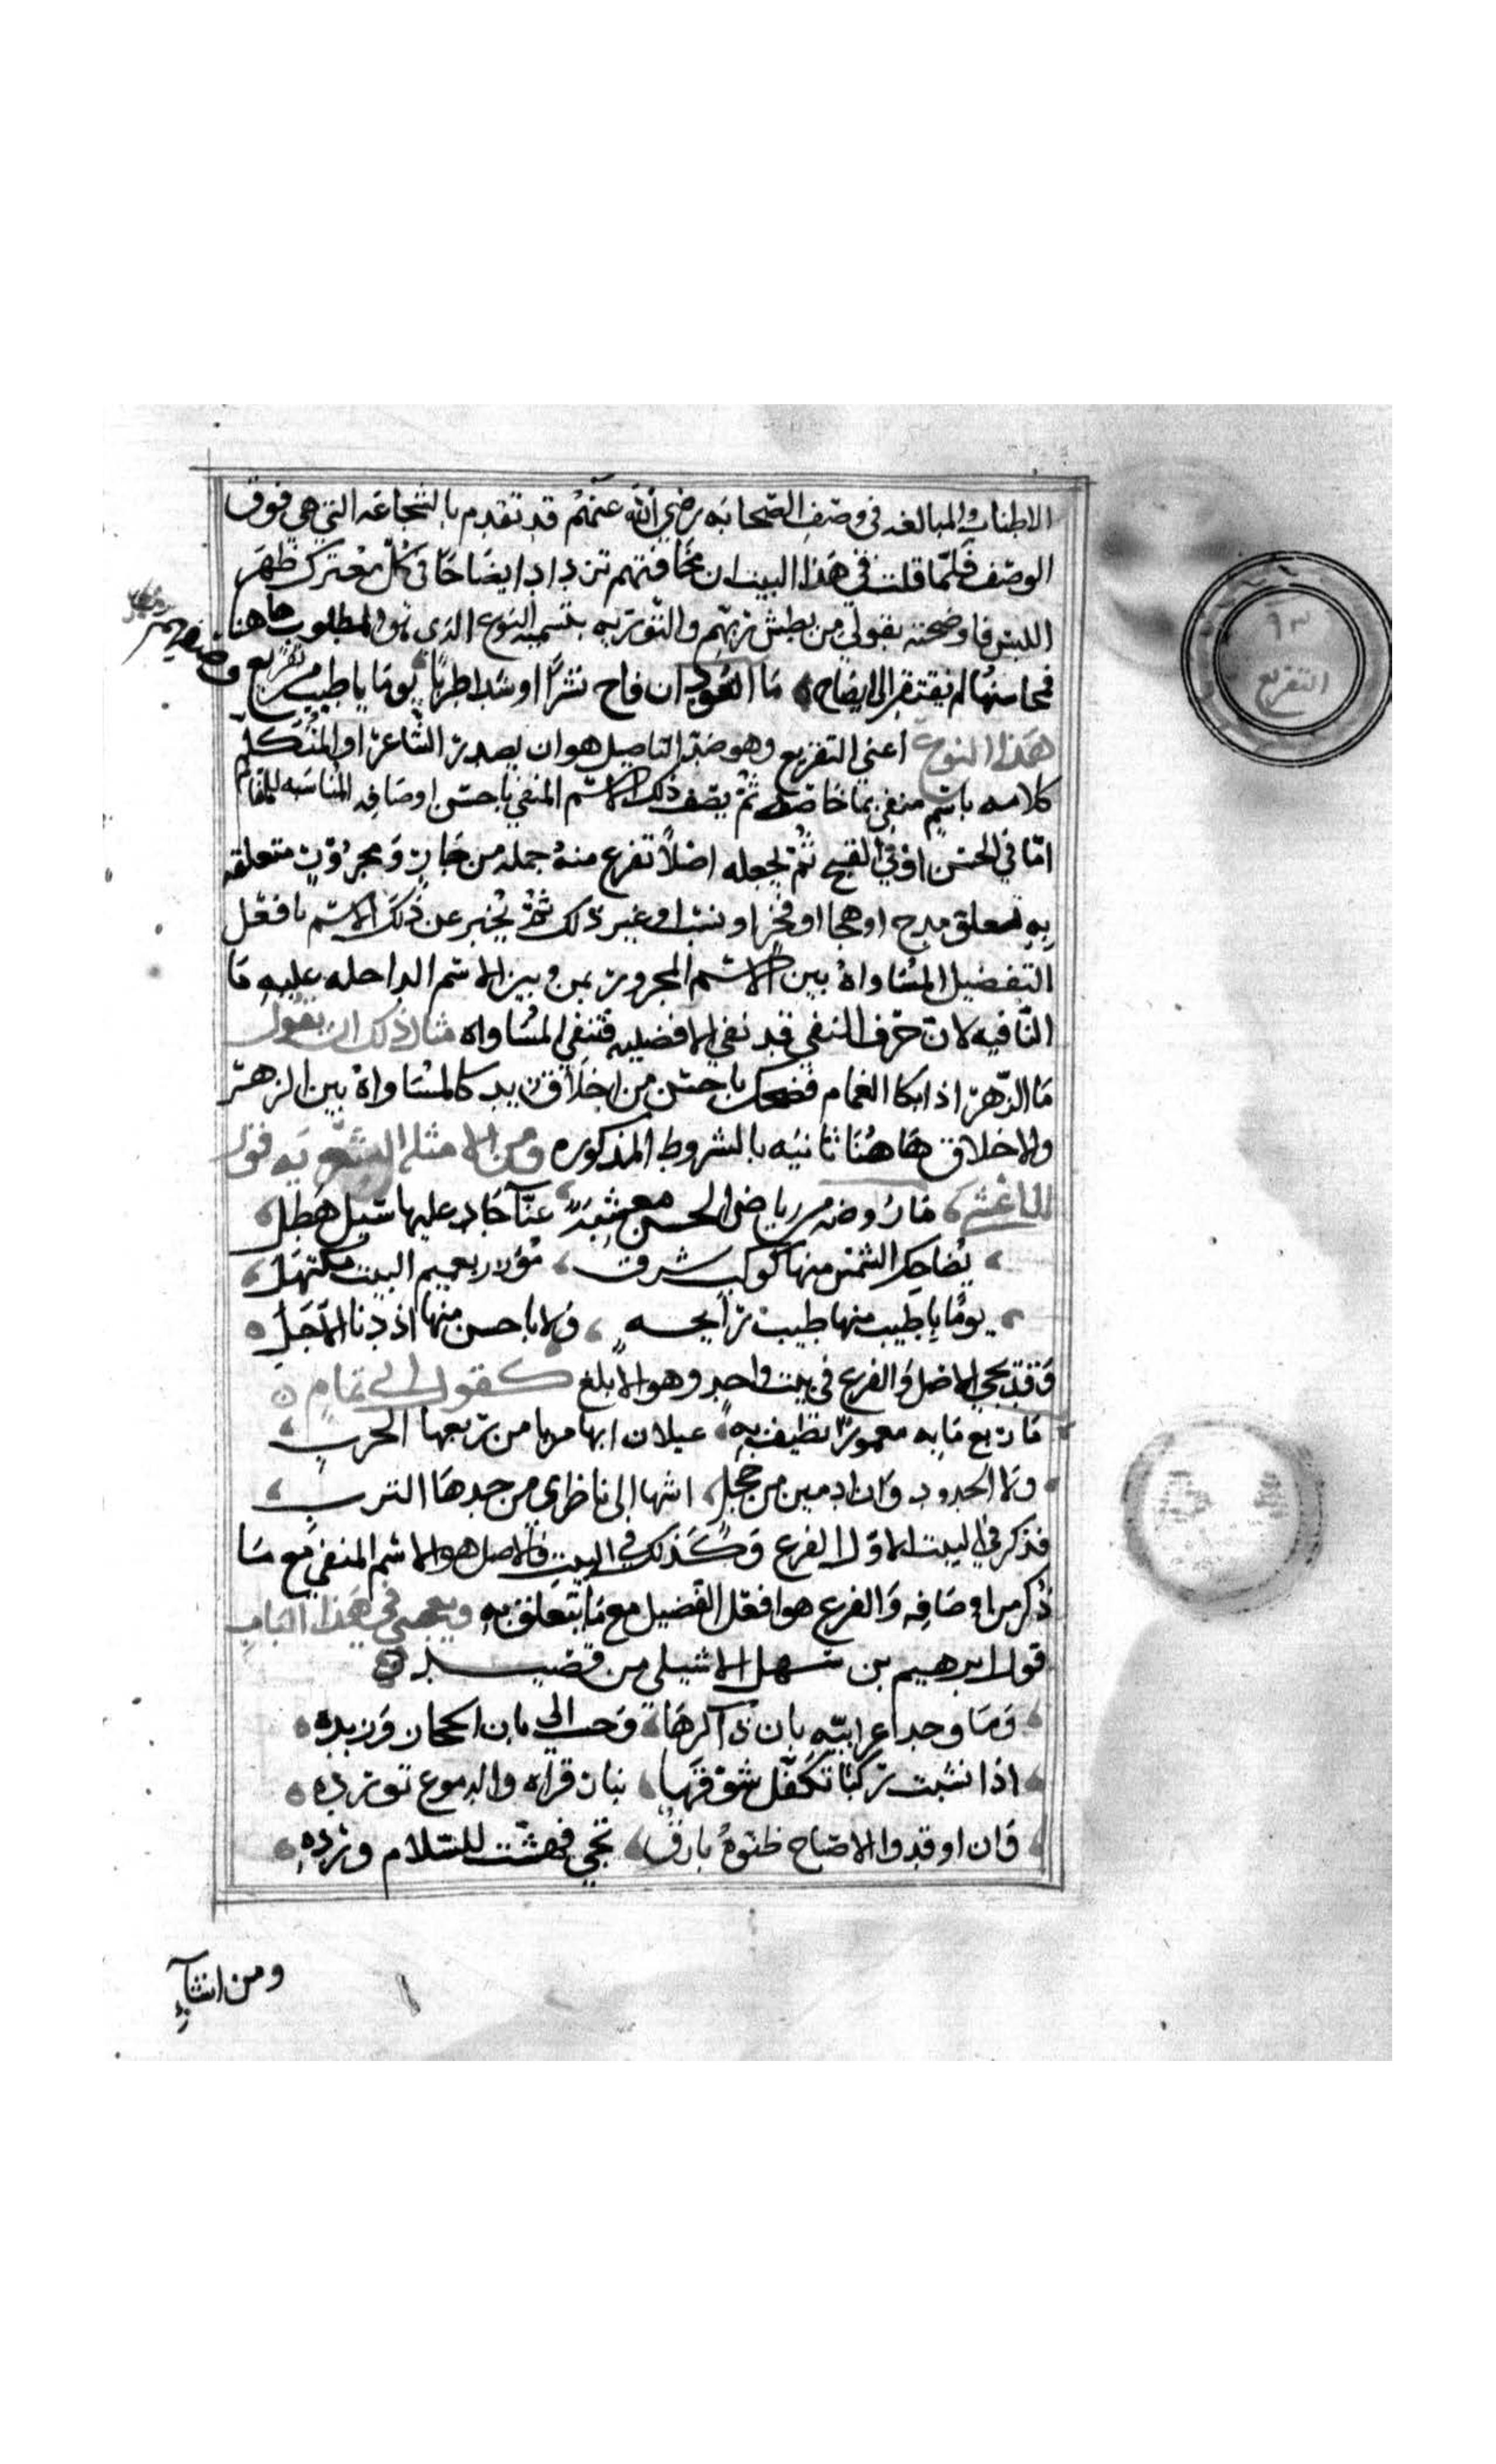 الاطناب والمبالغه في وصف الصحابه رضي الله عنهم قد تقدم بالشجاعه التي هي فوق
الوصف فلما قلت في هذا البيت ان مخافتهم تزداد ايضاحا في كل معترك ظهر
اللبس فاوضحته بقولي من بطش ربهم والتوريه بتسميه النوع الذي هو المطلوب هاهنا
فمحاسنها لم تفتقر الى ايضاح ما العود ان فاح نشرا او شدا طربا يوما باطيب من تفريع وصفهم
هذا النوع اعني التفريع وهو ضد التاصيل هو ان يصدر الشاعر او المتكلم
كلامه باسم منفي بما خاصة ثم يصف ذلك الاسم المنفي باحسن اوصافه المناسبه للمقام
اما في الحسن او في القبح ثم يجعله اصلا تفرع منه جمله من جار ومجرور متعلقه
به تعلق مدح او هجا او فخر او نسب او غير ذلك ثم يخبر عن ذلك الاسم بافعل
التفضيل المساواة بين الاسم المجرور بمن وبين الاسم الداخله عليه ما
النافيه لان حرف النفي قد نفي الافضليه فتنفي المساواه مثال ذلك ان نقول
ما الزهر اذا بكا الغمام فضحك باحسن من اخلاق زيد كالمساواة بين الزهر
والاخلاق هاهنا ثانيه بالشروط المذكوره ومن الامثله الشعريه قول
الاعشى ما روضه من رياض الحسن معشبة غنا جاد عليها سبل هطل
يضاحك الشمس منها كوكب شرق مؤزر بعميم البيت مكتهل
يوما باطيب منها طيب رايحه ولا باحسن منها اذ دنا الاجل
وقد يجي الاصل والفرع في بيت واحد وهو الابلغ كقول ابي تمام
ما ربع مابه معمورا نطيف به عيلان ابها مربا من ربعها الخرب
ولا الخدود وان ادمين من خجل اشها الى ناظري من خدها الترب
فذكر في البيت الاول الفرع وكذلك في البيت فالاصل هو الاسم المنفي مع ما
ذكر من اوصافه والفرع هو افعل التفضيل مع ما يتعلق به ويعجبني في هذا الباب
قول ابرهيم بن سهل الاشبيلي من قصيده
وما وجد اعرابيه بان ذاكرها وحن الي بان الحجاز ورنده
اذا نشبت ركبا تكفل شوقها بنان قراه والدموع تورده
وان اوقدوا الاصباح ظنوه بارق تجي فهشت للسلام ورده
ومن انشاء
٩٣
التفريع